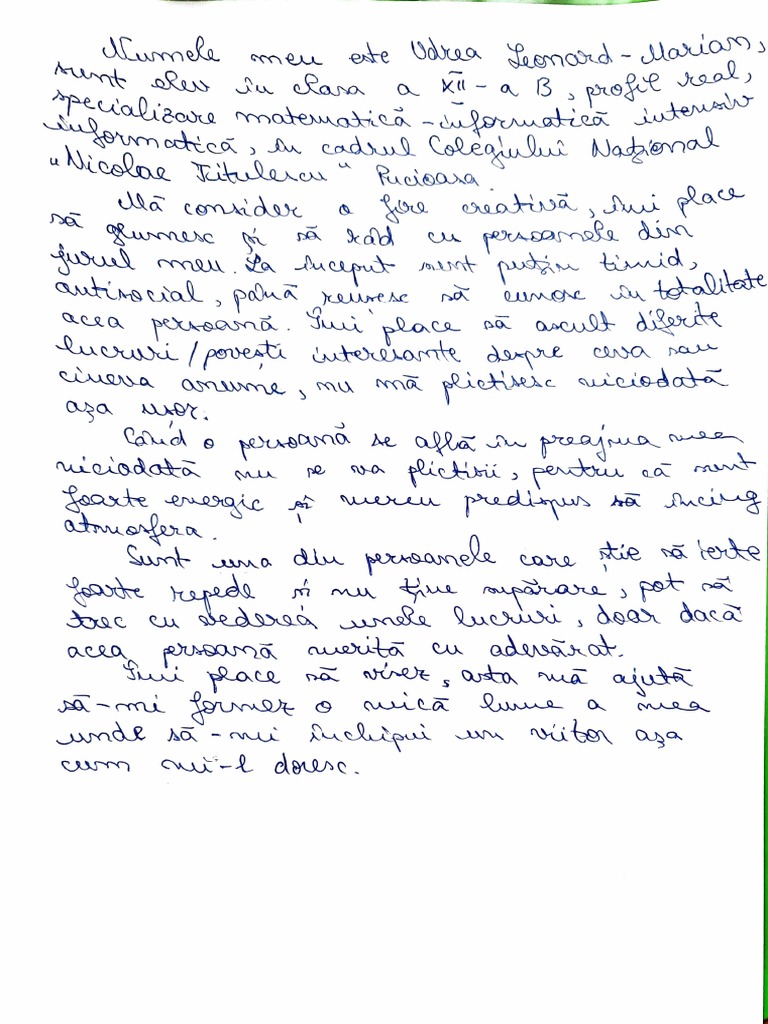 Numele meu este Udrea Leonard-Marian,
sunt elev în clasa a XII-a B, profil real,
specializare matematică-informatică intensiv
informatică, în cadrul Colegiului Național
„Nicolae Titulescu" Pucioasa.
Mă consider o fire creativă, îmi place
să glumesc și să râd cu persoanele din
jurul meu. La început sunt puțin timid,
antisocial, până reusesc să cunosc în totalitate
acea persoană. Îmi place să ascult diferite
lucruri/povești interesante despre ceva sau
cineva anume, nu mă plictisesc niciodată
așa ușor.
Când o persoană se află în preajma mea
niciodată nu se va plictisii, pentru că sunt
foarte energic și mereu predispus să încing
atmosfera.
Sunt una din persoanele care știe să ierte
foarte repede și nu ține supărare, pot să
trec cu vederea unele lucruri, doar dacă
acea persoană merită cu adevărat.
Îmi place să visez, asta mă ajută
să-mi formez o mică lume a mea
unde să-mi închipui un viitor așa
cum mi-l doresc.